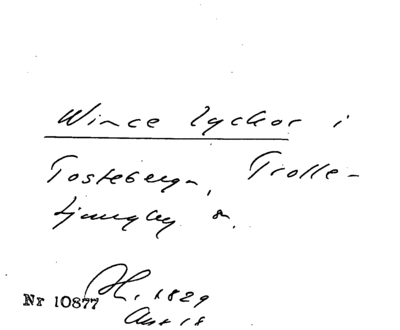 Wince lyckor i
Tosteberga, Trolle-
ljungby sn.
Nr 10877 H. 1829